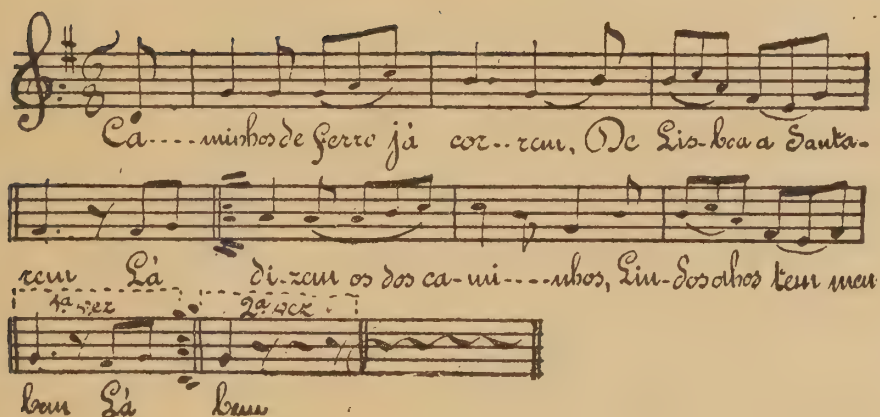 Ca----minhos de ferro já cor--rem, De Lis-boa a Santa-
rem Lá di-zem os dos ca-mi----nhos, Lin-dos olhos tem meu
1ª vez 2ª vez
bem Lá bem